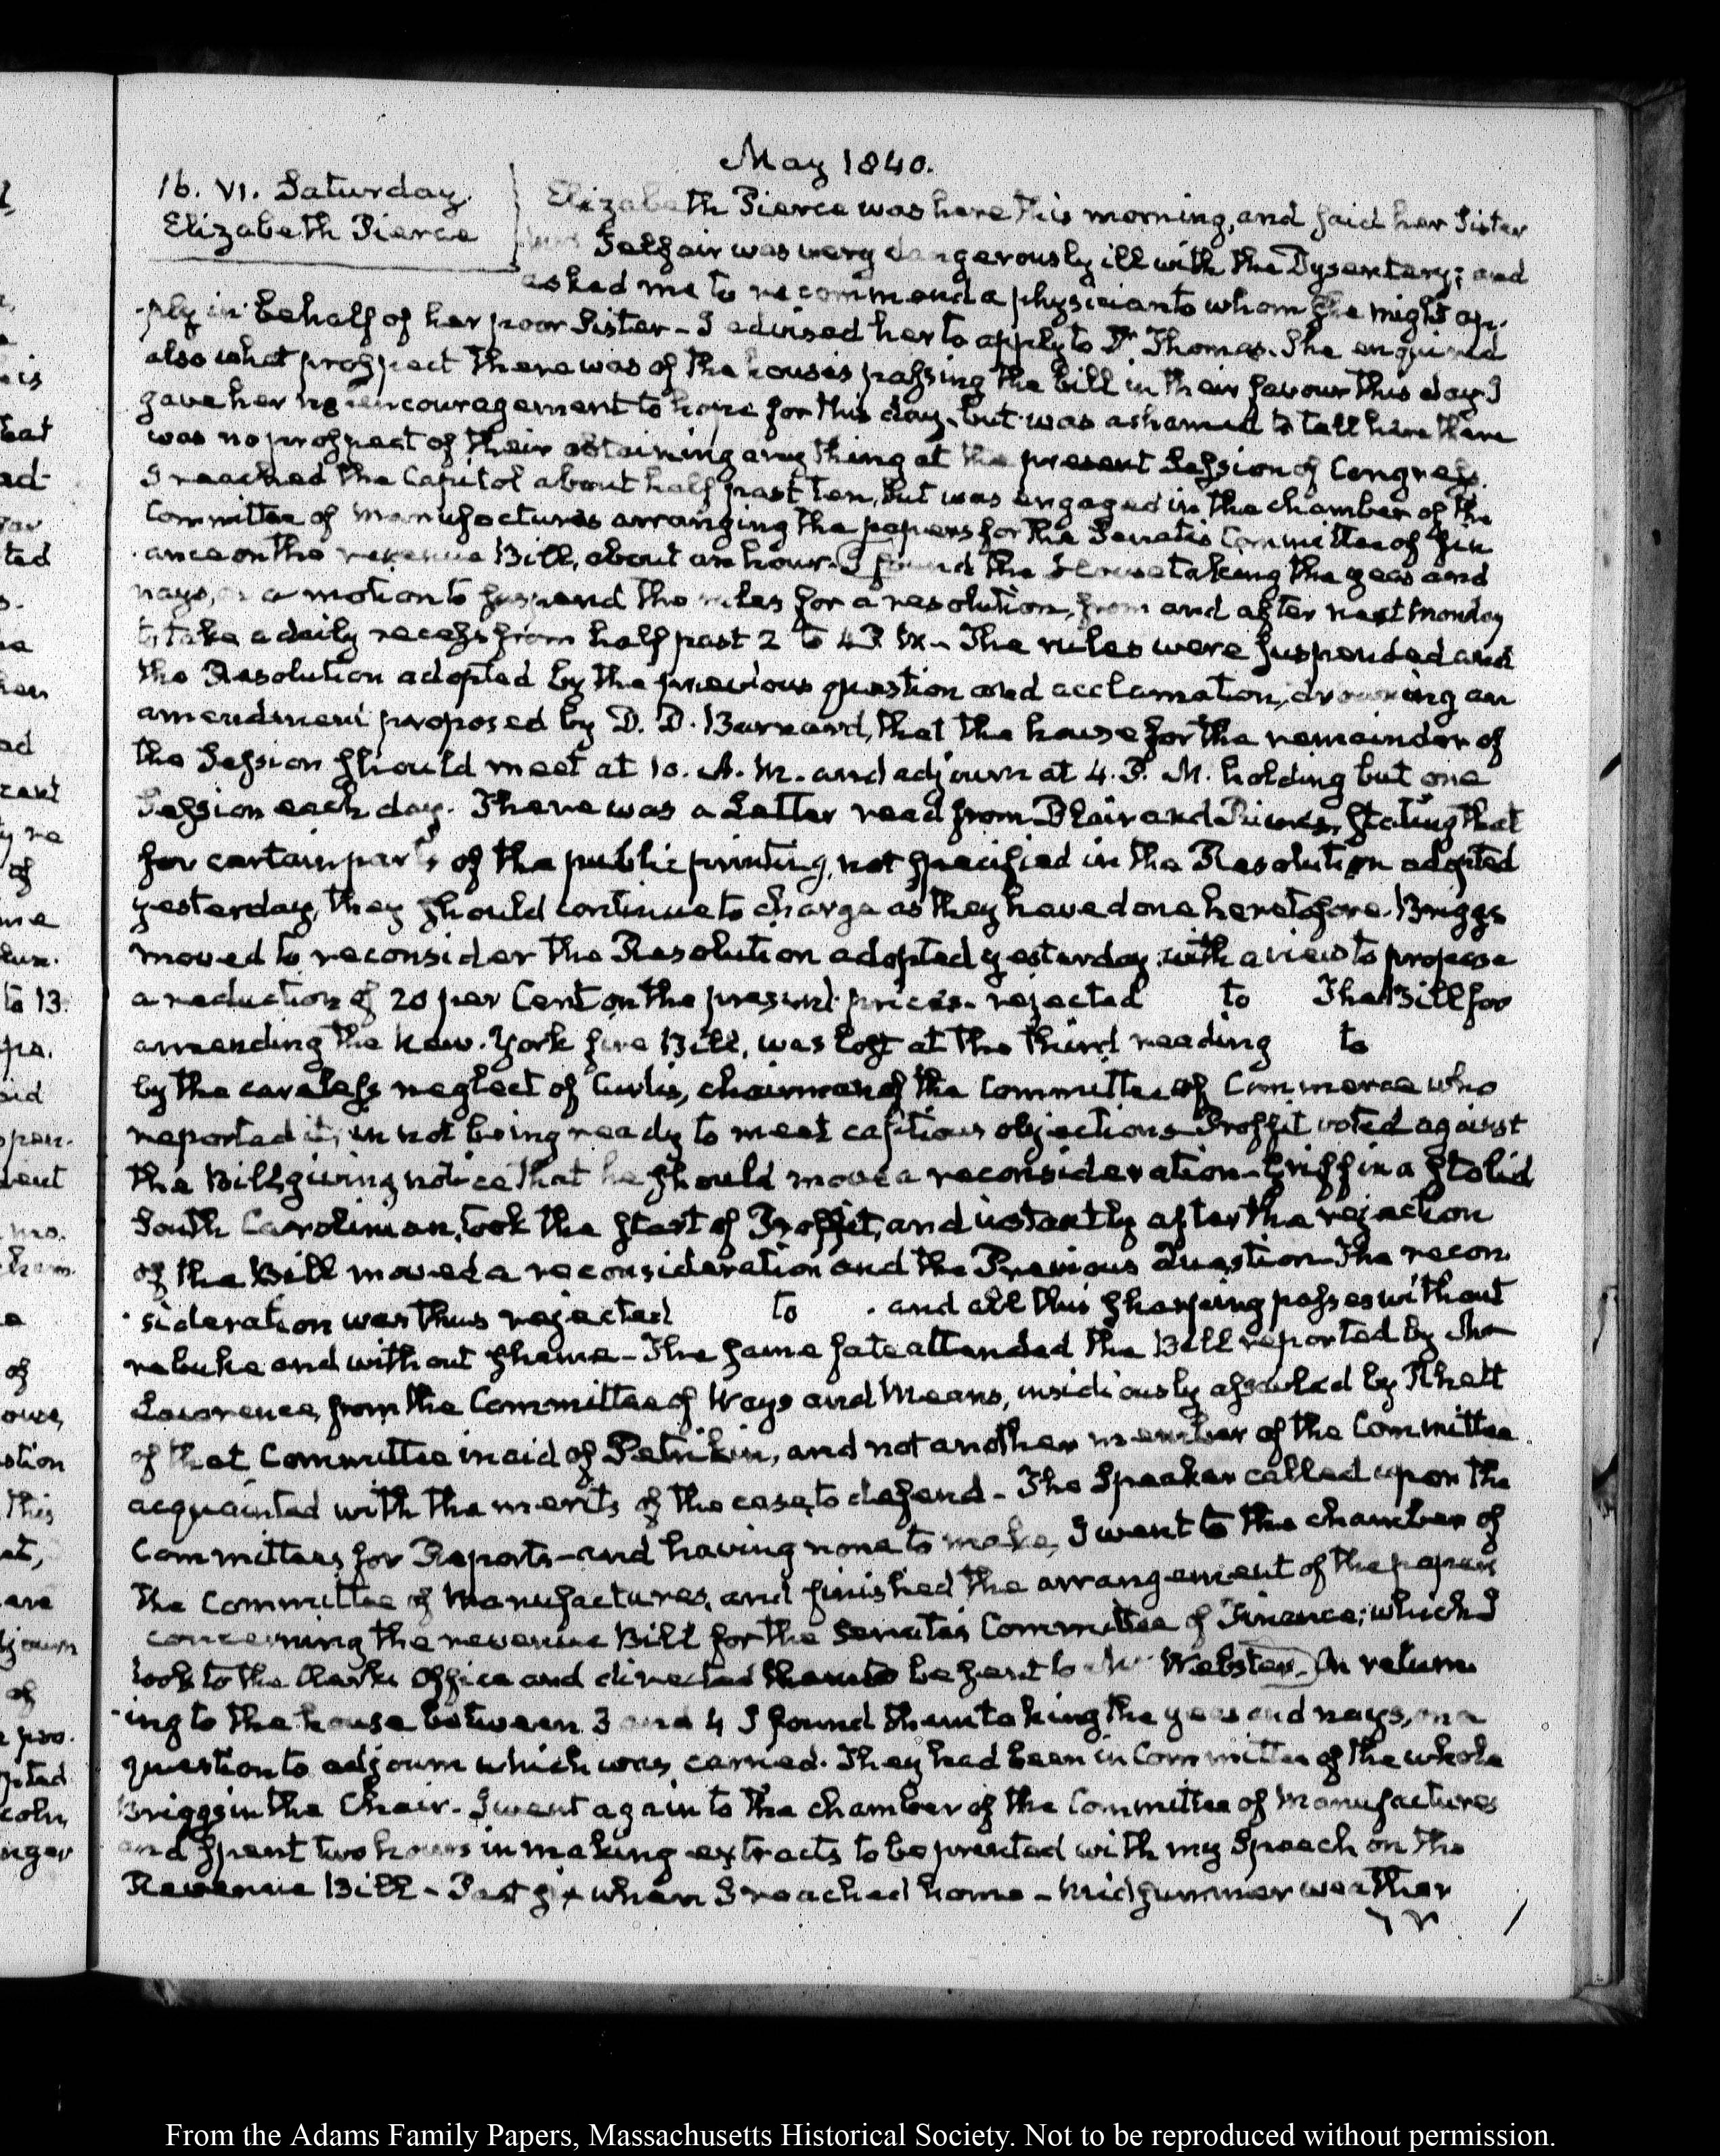 May 1840.
16. VI. Saturday.
Elizabeth Pierce
Elizabeth Pierce was here this morning, and said her Sister
Mrs Telfair was very dangerously ill with the Dysentery; and
asked me to recommend a physician to whom she might ap-
-ply in behalf of her poor Sister - I advised her to apply to Dr Thomas. She enquired
also what prospect there was of the house's passing the bill in their favour this day. I
gave her no encouragement to hope for this day, but was ashamed to tell her there
was no prospect of their obtaining any thing at the present Session of Congress.
I reached the Capitol about half past ten, but was engaged in the chamber of the
Committee of Manufactures arranging the papers for the Senate's Committee of Fin
-ance on the revenue Bill, about an hour. I found the House taking the yeas and
nays, on a motion to suspend the rules for a resolution, from and after next Monday
to take a daily recess from half past 2 to 4 P. M - The rules were suspended and
the Resolution adopted by the previous question and acclamation, drowning an
amendment proposed by D. D. Barnard, that the house for the remainder of
the Session should meet at 10. A. M. and adjourn at 4. P. M. holding but one
Session each day. There was a Letter read from Blair and Rives, stating that
for certain parts of the public printing, not specified in the Resolution adopted
yesterday, they should continue to charge as they have done heretofore. Briggs
moved to reconsider the Resolution adopted yesterday, with a view to propose
a reduction of 20 per Cent on the present prices. rejected to The Bill for
amending the New-York fire Bill, was lost at the third reading to
by the careless neglect of Curtis, chairman of the Committee of Commerce who
reported it, in not being ready to meet captious objections - Proffit voted against
the Bill, giving notice that he should move a reconsideration - Griffin a stolid
South Carolinian, took the start of Proffit, and instantly after the rejection
of the Bill moved a reconsideration and the Previous Question - The recon
-sideration was thus rejected to . and all this sharping passes without
rebuke and without shame - The same fate attended the Bill reported by Mr
Lawrence, from the Committee of Ways and Means, insidiously assailed by Rhett
of that Committee in aid of Petrikin, and not another member of the Committee
acquainted with the merits of the case, to defend - The Speaker called upon the
Committees for Reports - and having none to make, I went to the chamber of
the Committee of Manufactures, and finished the arrangement of the papers
concerning the revenue Bill for the Senate's Committee of Finance; which I
took to the Clerk's Office and directed them to be sent to Mr Webster. On return
-ing to the house between 3 and 4 I found them taking the yeas and nays, on a
question to adjourn which was carried. They had been in Committee of the whole
Briggs in the Chair. I went again to the chamber of the Committee of Manufactures
and spent two hours in making extracts to be printed with my Speech on the
Revenue Bill - Past six when I reached home - Midsummer weather
From the Adams Family Papers, Massachusetts Historical Society. Not to be reproduced without permission.